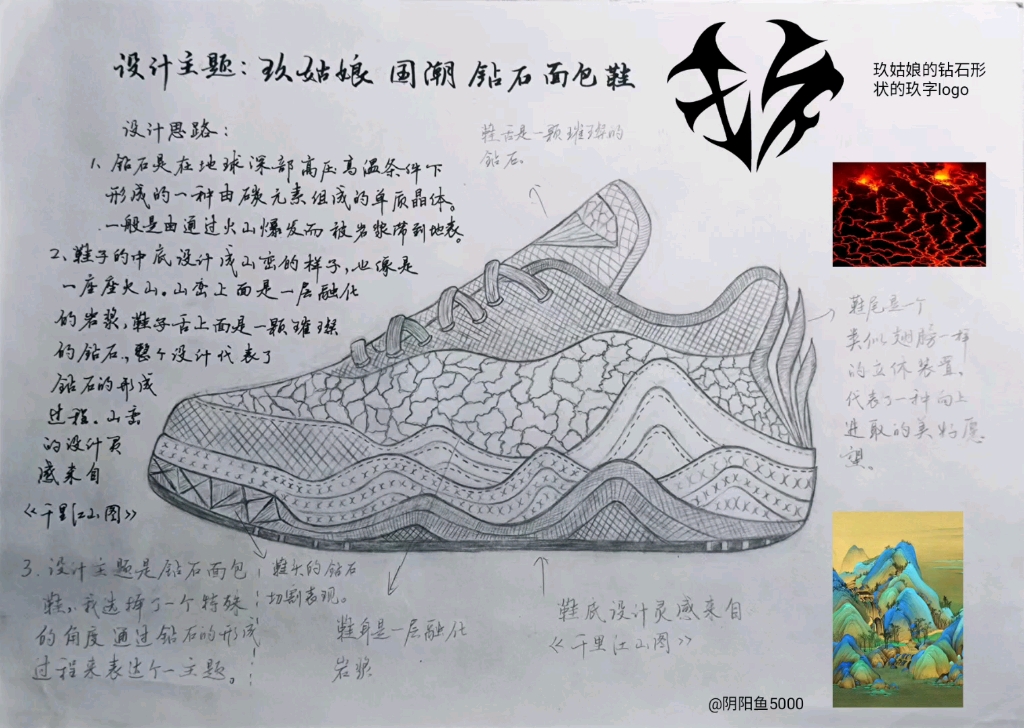 设计主题：玖姑娘 国潮 钻石面包鞋
玖姑娘的钻石形
状的玖字logo
设计思路：
1、钻石是在地球深部高压高温条件下
形成的一种由碳元素组成的单质晶体。
一般是由通过火山爆发而被岩浆带到地表。
2、鞋子的中底设计成山峦的样子，也像是
一座座火山。山峦上面是一层融化
的岩浆，鞋子舌上面是一颗璀璨
的钻石，整个设计代表了
钻石的形成
过程。山峦
的设计灵
感来自
《千里江山图》
3、设计主题是钻石面包
鞋，我选择了一个特殊
的角度通过钻石的形成
过程来表达个一主题。
鞋舌是一颗璀璨的
钻石
鞋尾是一个
类似翅膀一样
的立体装置，
代表了一种向上
进取的美好愿
望。
鞋头的钻石
切割表现。
鞋身是一层融化
岩浆
鞋底设计灵感来自
《千里江山图》
@阴阳鱼5000